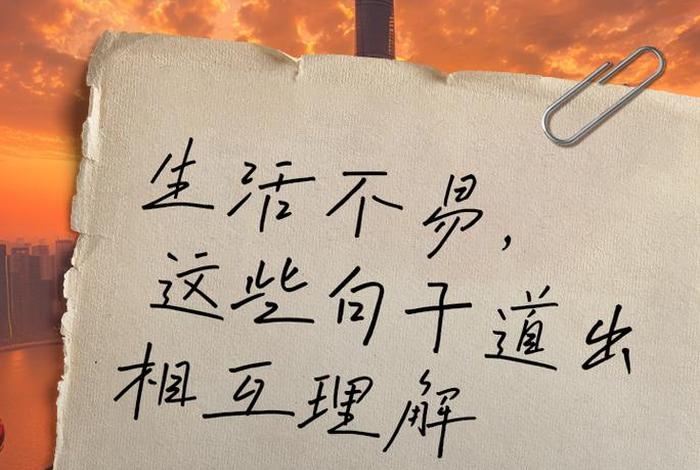 生活不易,
这些句子道出
相互理解